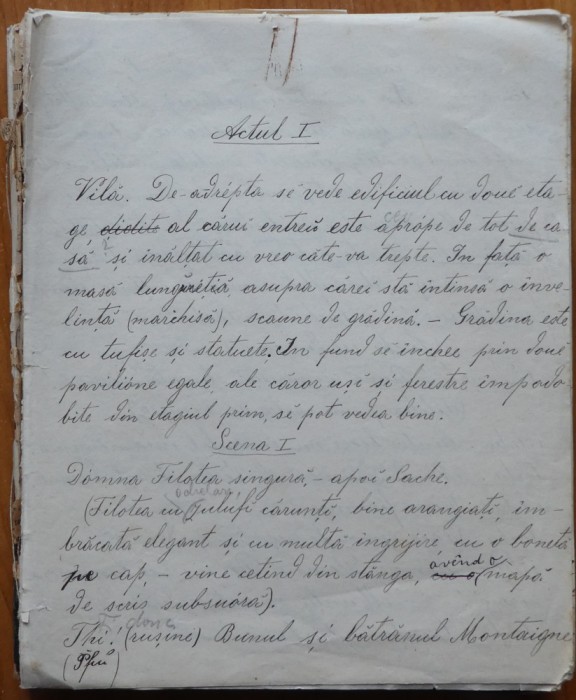 Actul I
Vilă. De-adrépta se vede edificiul cu doué eta-
ge, clădit al cărui entreu este aprópe de tot de ca-
să și înălțat cu vreo câte-va trepte. In față o
masă lungueță, asupra cărei stă intinsă o inve-
lință (marchisă), scaune de grădină. – Grădina este
cu tufișe și statuete. In fund se inchee prin doué
pavilióne egale, ale căror uși și ferestre impodo-
bite din etagiul prim, se pot vedea bine.
Scena I
Dómna Filotea singură, – apoi Sache.
(Filotea cu zulufi cărunți, bine arangiați, im-
brăcată elegant și cu multă ingrijire, cu o bonetă
pe cap, – vine cetind din stânga, avénd o mapă
de scris subsuóră).
Thi! (rușine) Bunul și bătrânul Montaigne
(Pfiu)